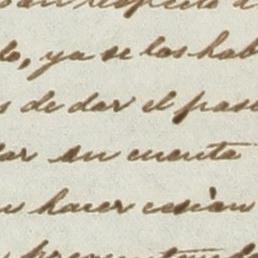 respeto
lo, ya se las hab
s de dar el pas
dar en cuenta
hacer cesion